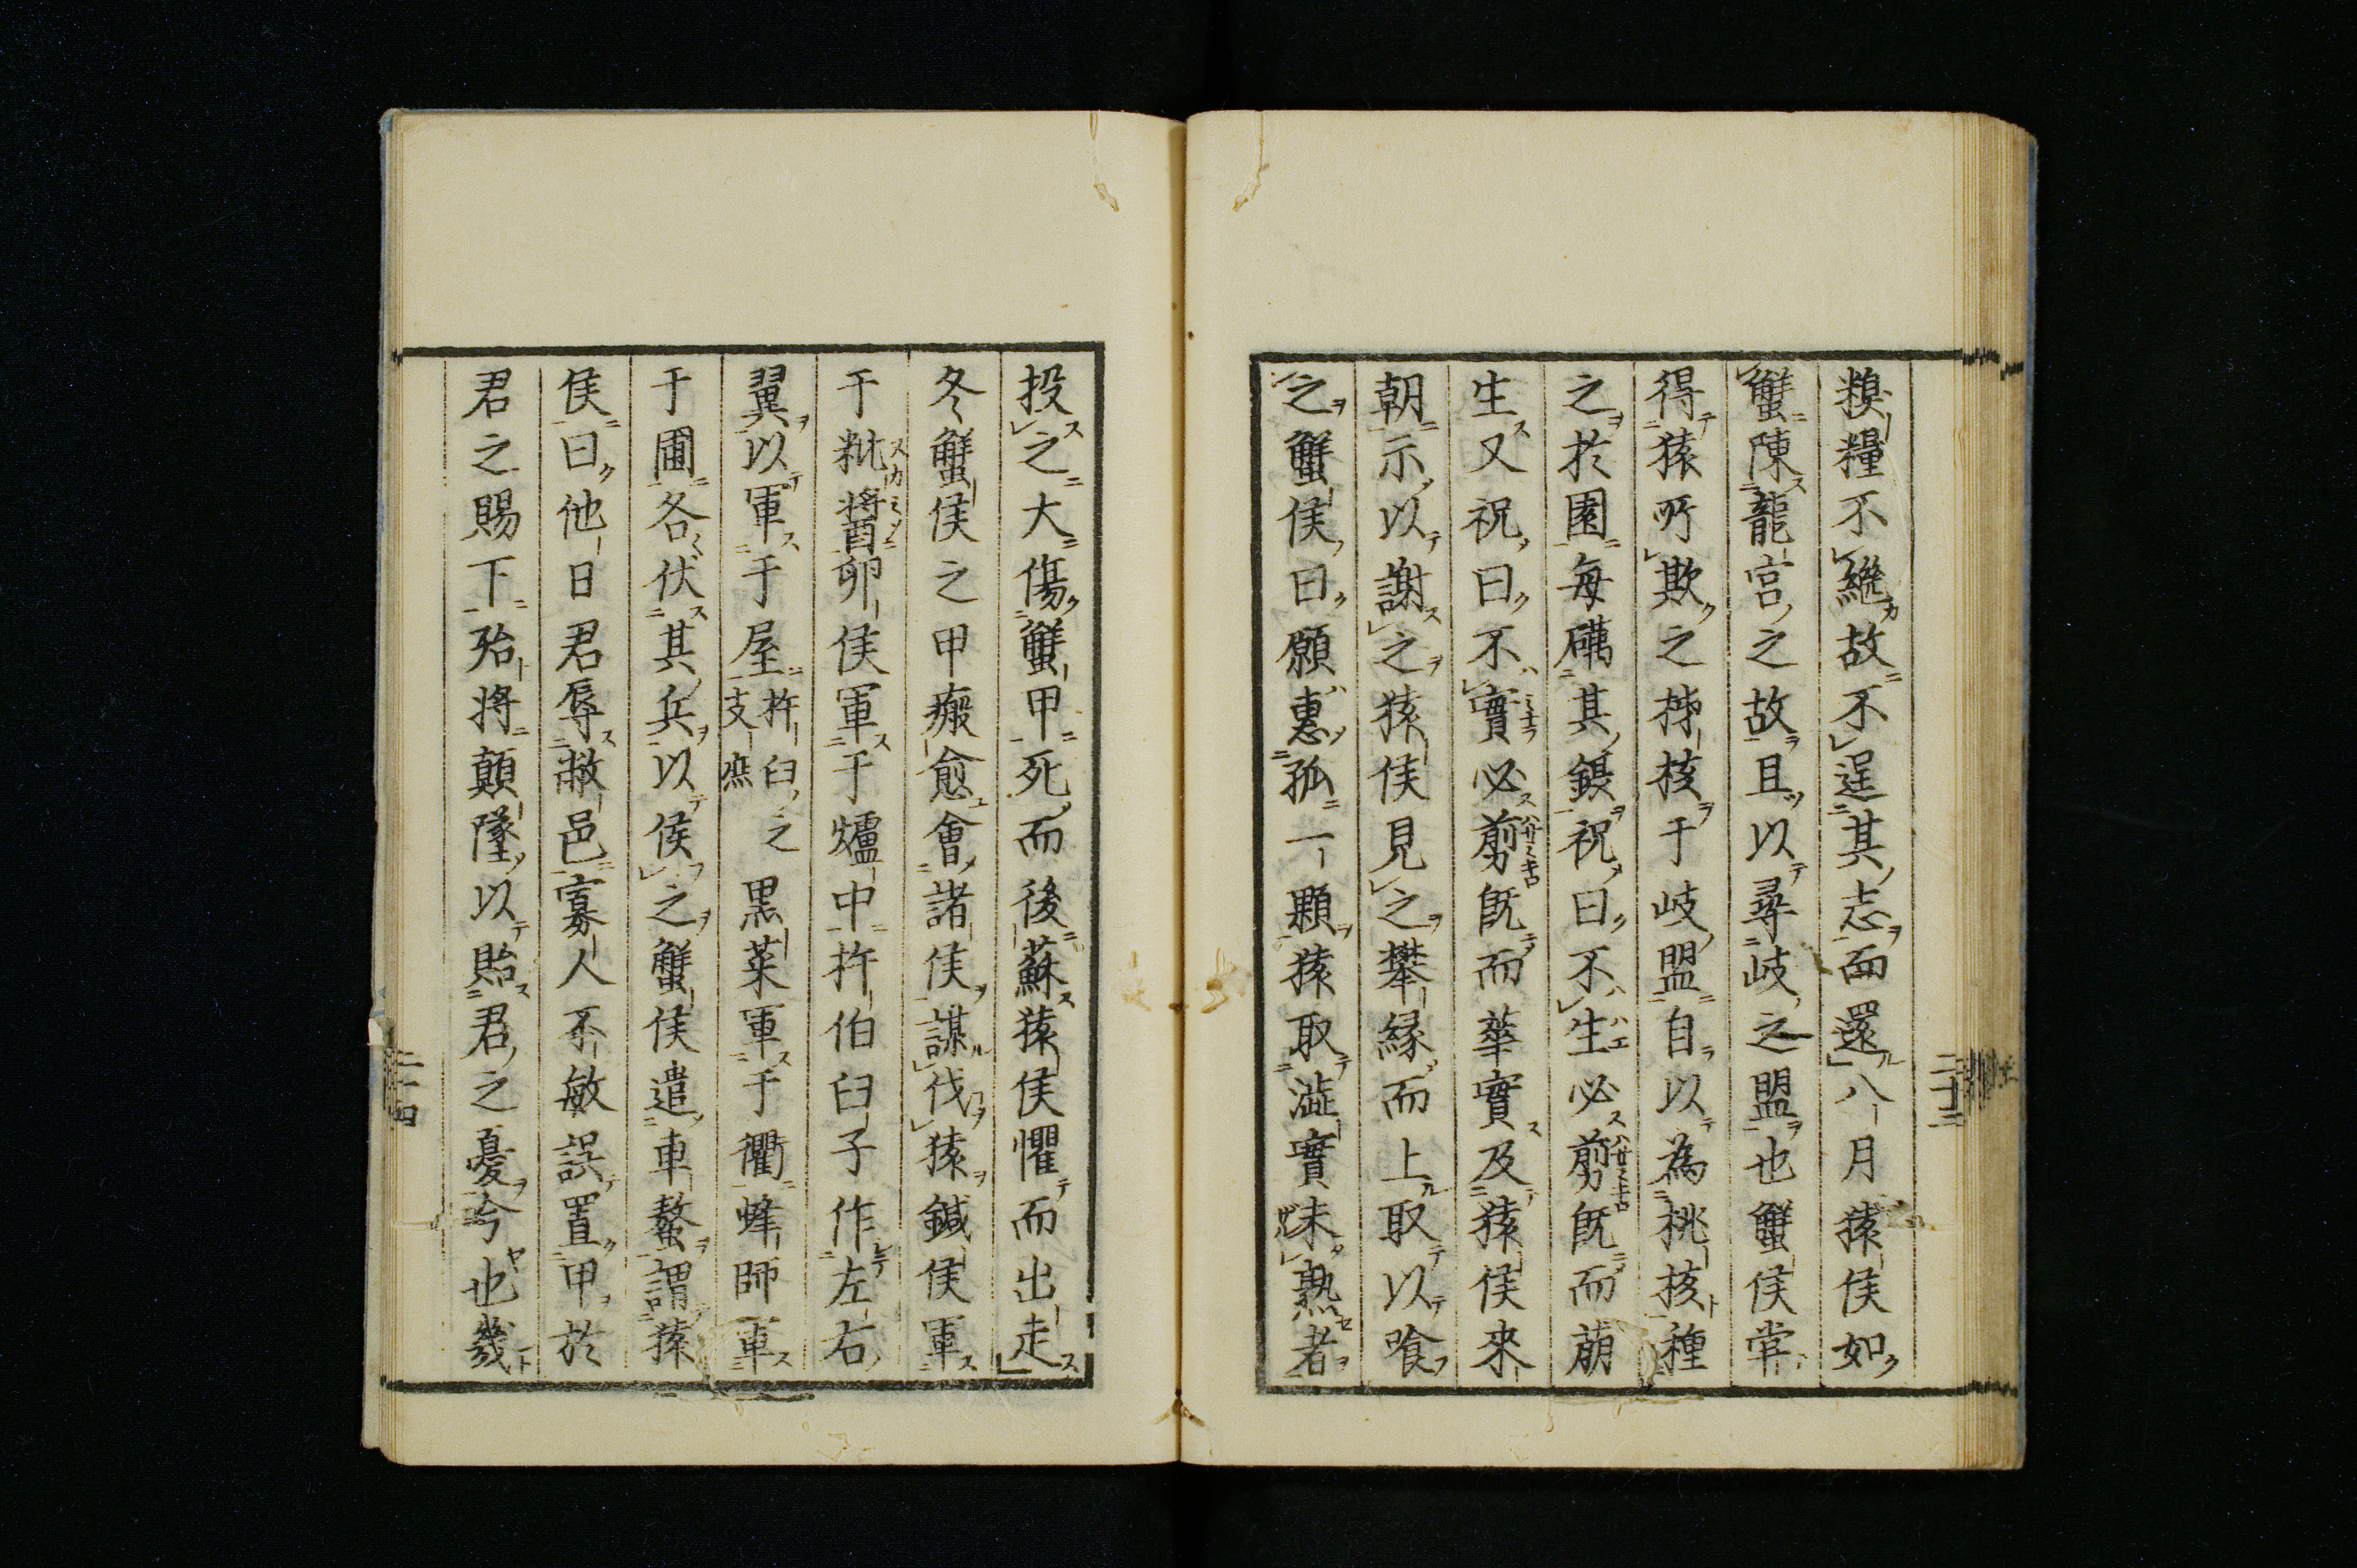 糗糧不繼故不逞其志而還八月猿侯如
蟹陳龍宮之故且以尋岐之盟也蟹侯常
得猿所欺之柹核于岐盟自以為桃核種
之於園每礪其鋏祝曰不生必剪既而萠
生又祝曰不實必剪既而華實及猿侯來
朝示以謝之猿侯見之攀緣而上取以喰
之蟹侯曰願惠孤一顆猿取澁實未熟者
投之大傷蟹甲死而後蘇猿侯懼而出走
冬蟹侯之甲瘢愈會諸侯謀伐猿鍼侯軍
于粃將酉卵侯軍于爐中杵伯臼子作左右
翼以軍于屋杵臼之支庶黒菜軍于衢蜂師軍
于圃各伏其兵以俟之蟹侯遣車螯謂猿
侯曰他日君辱敝邑寡人不敏誤置甲於
君之賜下殆將顛墜以貽君之憂今也幾
二十三
二十四